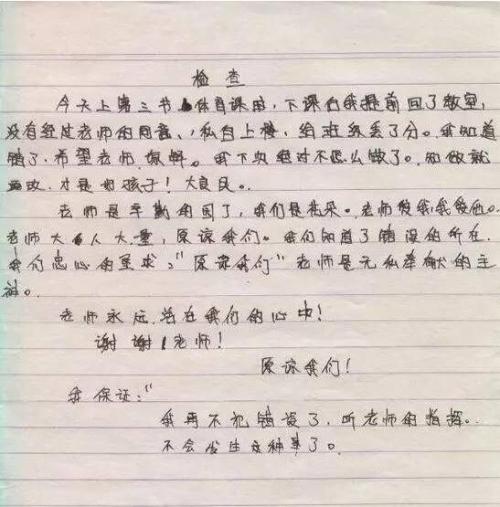 检查
今天上第三节体育课时,下课后我提前回了教室,
没有经过老师的同意、私自上楼,给班级丢了分。我知道
错了,希望老师原谅。我下次绝对不怎么做了。知做就
改,才是好孩子!大良民。
老师是辛勤的园丁,我们是花朵。老师爱我,我爱他。
老师大人大量,原谅我们。我们知道了错误的所在,
我们忠心的星求:“原谅我们”老师是无私奉献的主
。
老师永远活在我们的心中!
谢谢!老师!
原谅我们!
我保证:“
我再不犯错误了,听老师的指挥。
不会发生这种事了。